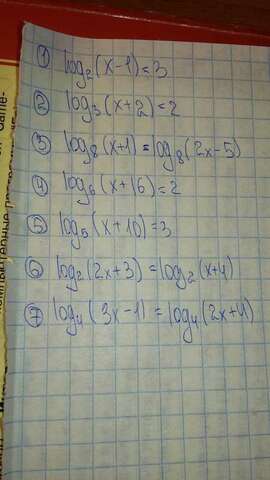 ① log₂(x-1)=3
② log₃(x+2)=2
③ log₈(x+1)=log₈(2x-5)
④ log₆(x+16)=2
⑤ log₅(x+10)=3
⑥ log₂(2x+3)=log₂(x+4)
⑦ log₄(3x-1)=log₄(2x+4)